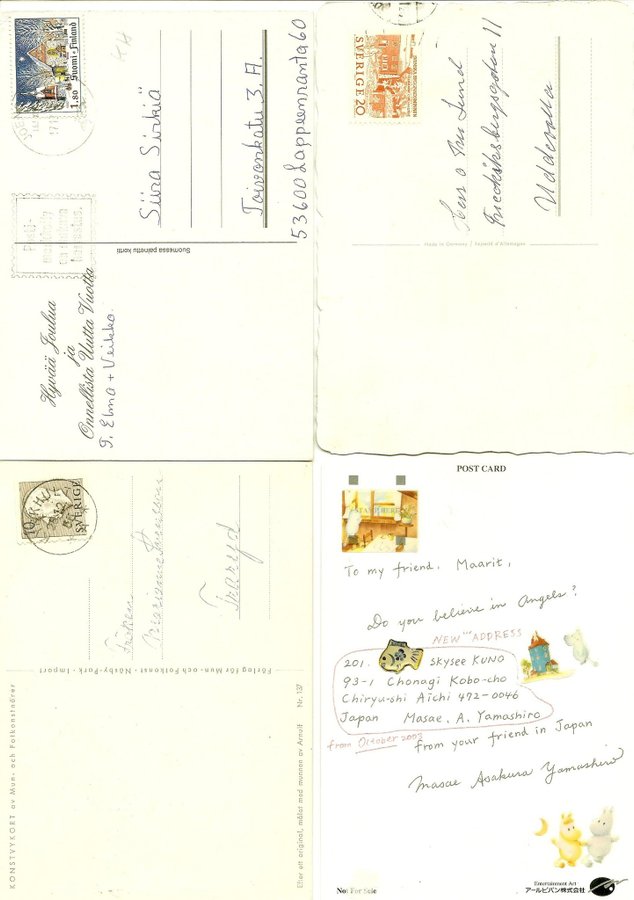 1.80 Suomi-Finland
Siira Sirkiä
Toivonkatu 3.A.
53600 Lappeenranta 60
Suomessa painettu kortti
Hyvää Joulua
ja
Onnellista Uutta Vuotta
T. Elma + Veikko.
SVERIGE 20
Fredriksbergsgatan 11
Uddevalla
Made in Germany
SVERIGE
Fröken
Marianne
Traryd
Förlag för Mun- och Fotkonst · Näsby-Park · Import
KONSTVYKORT av Mun- och Fotkonstnärer
Efter ett original, målat med munnen av Arnulf Nr. 137
POST CARD
STAMP HERE
To my friend, Maarit,
Do you believe in Angels?
NEW ADDRESS
201. SKYSEE KUNO
93-1 Chonagi Kobo-cho
Chiryu-shi Aichi 472-0046
Japan Masae. A. Yamashiro
from October 2003
from your friend in Japan
Masae Asakura Yamashiro
Not For Sale
Entertainment Art
アールビバン株式会社